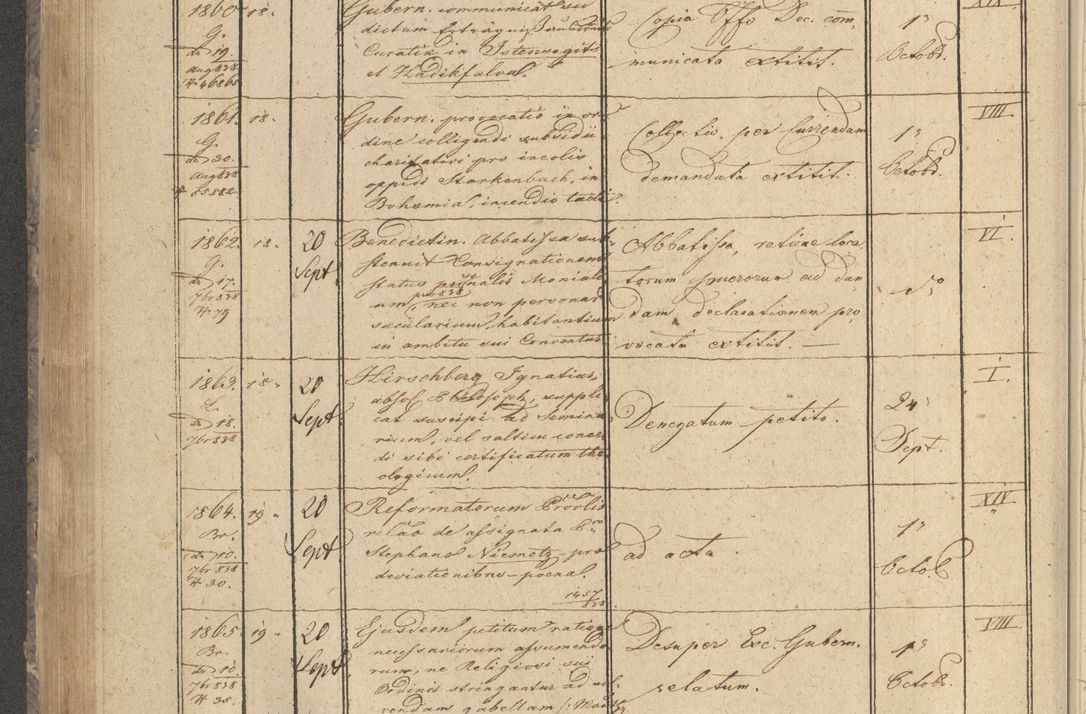 1860. 18.
G.
de 19.
aug 838
N 46865
Gubern. communicat su
dictum
Curatiae in Istensegits
et Hadikfalva.
Copia Offo Dec. com̄
municata extitit.
1a
Octobr.
XIX
1861. 18.
G.
de 30.
aug 838
N 65882
Gubern. provocatio in or
dine colligendi subsidii
charitativi pro incolis
oppidi Starkenbach, in
Bohæmia, incendio tacti.
Collectio per Currendam
demandata extitit.
1a
Octobr.
VIII
1862. 18.
G.
de 17.
7br 838
N 79
20
Sept
Benedictin. Abbatissa sub
sternit Consignationem
status personalis Monial
um pro 838, nec non personar
sæcularium, habitantium
in ambitu sui Conventus
Abbatissa, ratione loca
torum puerorum ad dan
dam declarationem pro
vocata extitit. —
VI.
1863. 18.
L.
de 18.
7br 838
20
Sept.
Hirschberg Ignatius,
absol. Philosoph, suppli
cat suscipi ad Semina
rium, vel saltim conce
di sibi certificatum the
ologicum.
Denegatum petito.
24
Sept.
I.
1864. 19.
Br.
de 10.
7br 838
N 30.
20
Sept
Reformatorum Prov̄lis
rel̄ao de assignata Pri
Stephano Niemetz pro
deviationibus pœna.
1457/838
ad acta.
1a
Octob.
XIV
1865. 19.
Br.
de 10.
7br 838
N 35.
20
Sept.
Ejusdem petitum ratione
necessariorum assumendo
rum, ne Religiosi sui
Ordinis stringantur ad sol
vendam gabellam
Desuper Exc. Gubern.
relatum.
1a
Octobr.
VIII